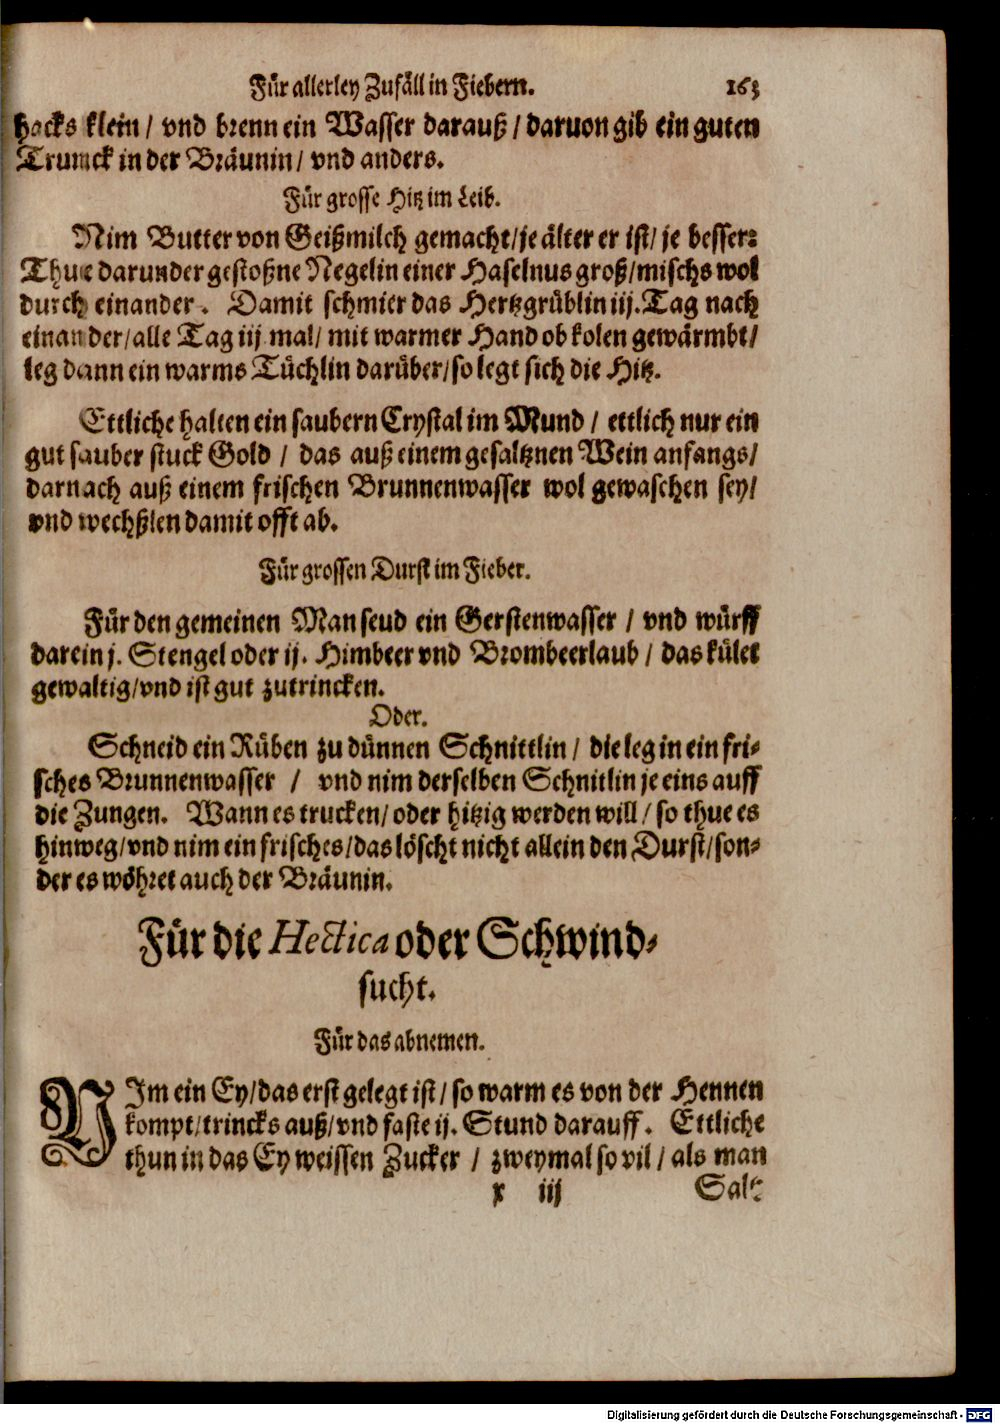 Für allerley Zufäll in Fiebern. 163
hacks klein / vnd brenn ein Wasser darauß / daruon gib ein guten
Trunck in der Bräunin / vnd anders.
Für grosse Hitz im Leib.
Nim Butter von Geißmilch gemacht / je älter er ist / je besser:
Thue darunder gestoßne Negelin einer Haselnus groß / mischs wol
durch einander. Damit schmier das Hertzgrüblin iij. Tag nach
einander / alle Tag iij mal / mit warmer Hand ob kolen gewärmbt /
leg dann ein warms Tüchlin darüber / so legt sich die Hitz.
Ettliche halten ein saubern Crystal im Mund / ettlich nur ein
gut sauber stuck Gold / das auß einem gesaltznen Wein anfangs /
darnach auß einem frischen Brunnenwasser wol gewaschen sey /
vnd wechßlen damit offt ab.
Für grossen Durst im Fieber.
Für den gemeinen Man seud ein Gerstenwasser / vnd würff
darein j. Stengel oder ij. Himbeer vnd Brombeerlaub / das kület
gewaltig / vnd ist gut zutrincken.
Oder.
Schneid ein Rüben zu dünnen Schnittlin / die leg in ein fri-
sches Brunnenwasser / vnd nim derselben Schnitlin je eins auff
die Zungen. Wann es trucken / oder hitzig werden will / so thue es
hinweg / vnd nim ein frisches / das löscht nicht allein den Durst / son-
der es wöhret auch der Bräunin.
Für die Hectica oder Schwind-
sucht.
Für das abnemen.
NIm ein Ey / das erst gelegt ist / so warm es von der Hennen
kompt / trincks auß / vnd faste ij. Stund darauff. Ettliche
thun in das Ey weissen Zucker / zweymal so vil / als man
x iij Saltz
Digitalisierung gefördert durch die Deutsche Forschungsgemeinschaft - DFG